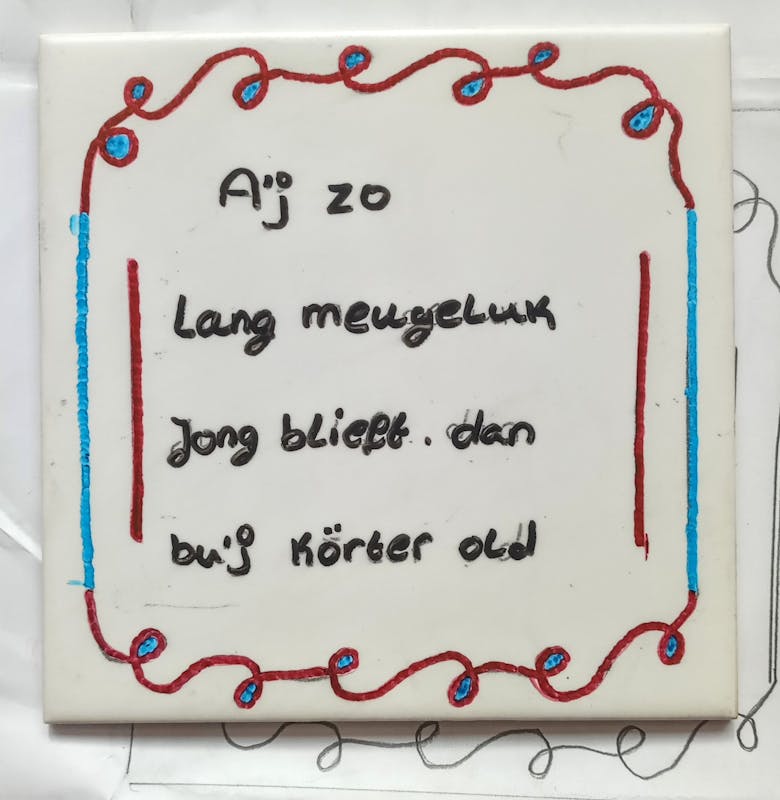 A'j zo
Lang meugeluk
Jong blieft. dan
bu'j körter old